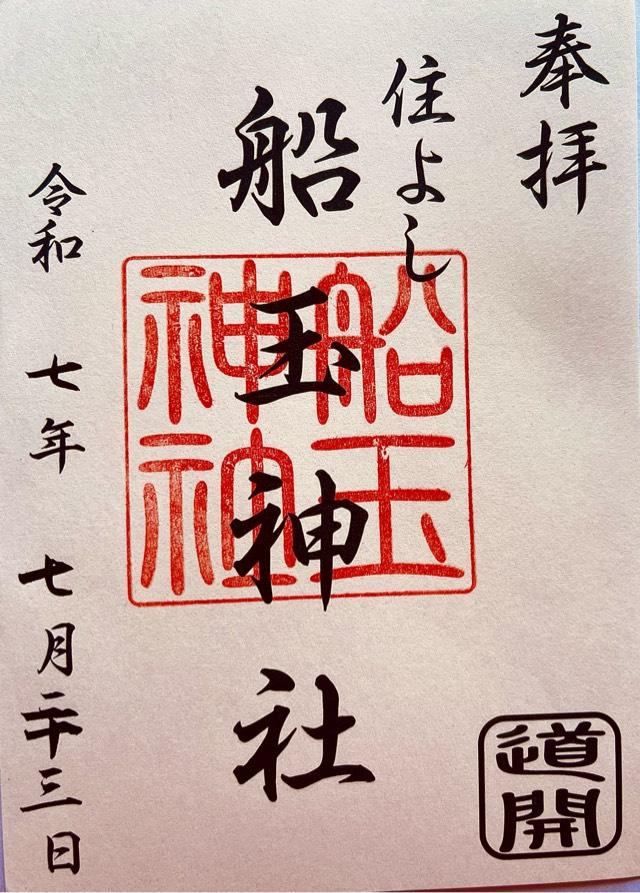 奉拝
住よし
船玉神社
船玉
神社
令和 七年 七月二十三日
道開